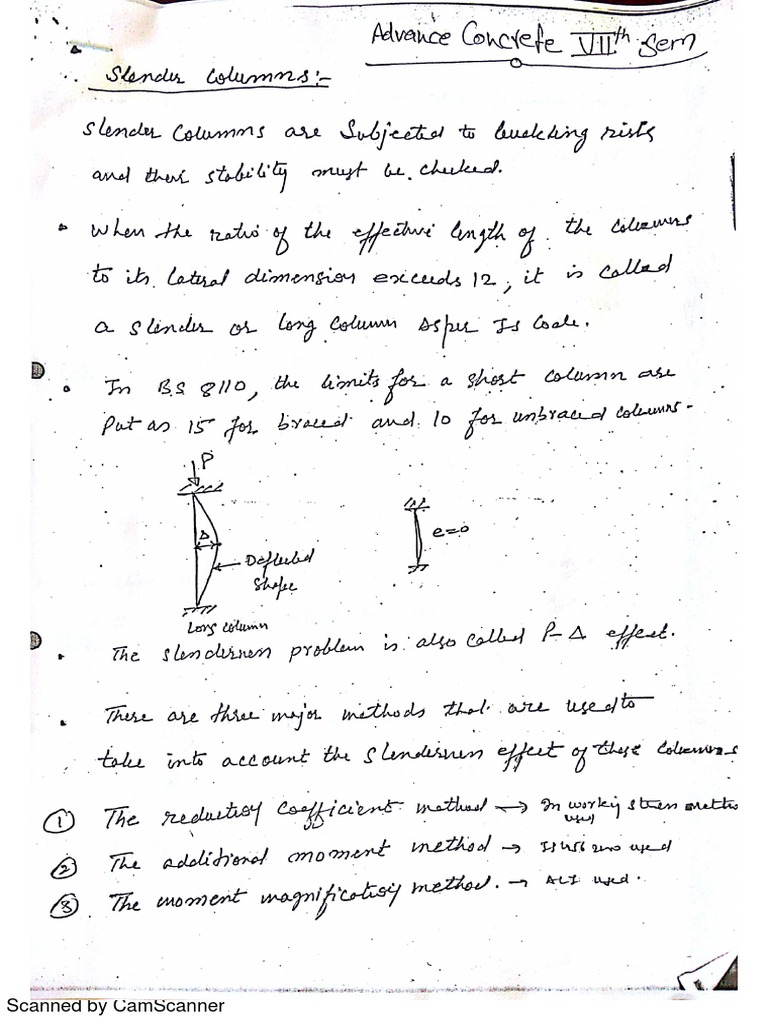 Advance Concrete VIIth Sem
Slender Columns:-
Slender Columns are Subjected to buckling risks
and their stability must be checked.
When the ratio of the effective length of the columns
to its lateral dimension exceeds 12, it is called
a slender or long column as per Is Code.
In BS 8110, the limits for a short column are
Put as 15 for braced and 10 for unbraced columns-
P
Δ
e=0
Deflected
Shape
Long column
The slenderness problem is also called P-Δ effect.
There are three major methods that are used to
take into account the slenderness effect of these columns
① The reduction coefficient method → In working stress method
used
② The additional moment method → IS 456 2000 used
③ The moment magnification method. → ACI used.
Scanned by CamScanner